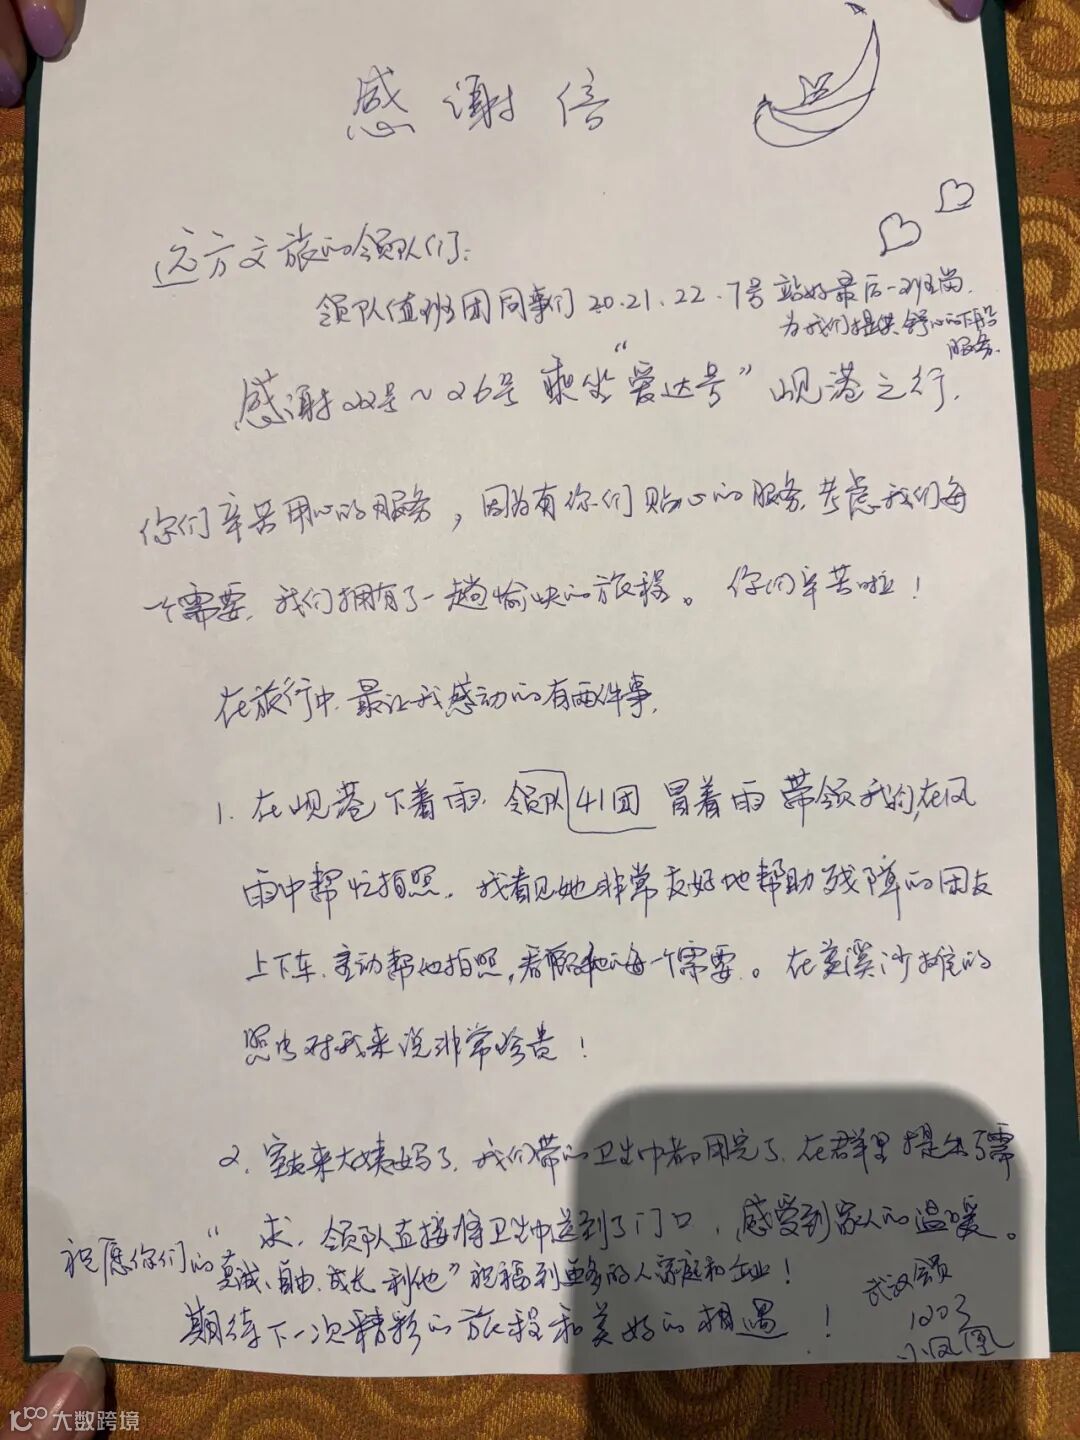 感谢信
远方文旅的领队们:
领队值班团同事们20.21.22.7号 站好最后一班岗.
为我们提供舒心的下船
服务.
感谢22号~26号 乘坐"爱达号" 岘港之行.
你们辛苦用心的服务,因为有你们贴心的服务.考虑我们每
一个需要.我们拥有了一趟愉快的旅程。你们辛苦啦!
在旅行中.最让我感动的有两件事.
1.在岘港下着雨.领队41团 冒着雨 带领我们,在风
雨中帮忙拍照.我看见她非常友好地帮助残障的团友
上下车.主动帮他拍照,看顾他的每一个需要.。在美溪沙滩的
照片对我来说非常珍贵!
2.室友来大姨妈了.我们带的卫生巾都用完了.在群里提出了需
求.领队直接将卫生巾送到了门口,感受到家人的温暖。
祝愿你们的"真诚、自由.成长.利他"祝福到更多的人家庭和企业!
期待下一次精彩的旅程和美好的相遇!
武汉
1003
小凤凰
大数跨境